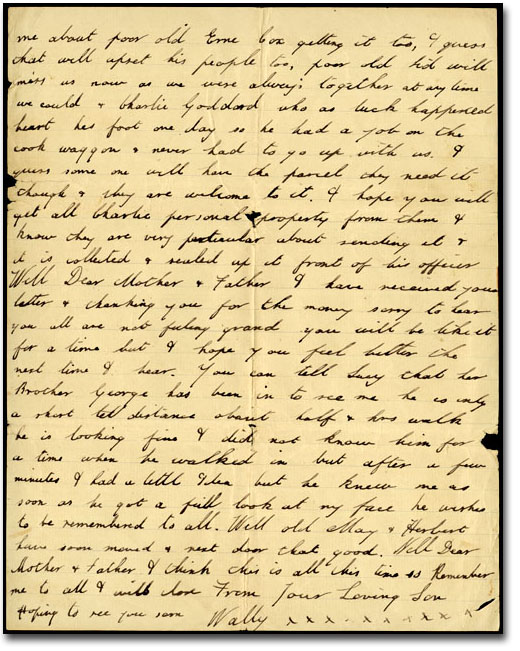 me about poor old Erne Cox getting it too, I guess
that will upset his people too, poor old Sid will
miss us now as we were always together at any time
we could & Charlie Goddard who as luck happened
heart his foot one day so he had a job on the
cook waggon & never had to go up with us. I
guess some one will have the parcel they need it
though & they are welcome to it. I hope you will
get all Charlie personal property from them I
know they are very particular about sending it &
it is collected & sealed up it front of his officer
Well Dear Mother & Father I have received your
letter & thanking you for the money sorry to hear
you all are not feeling grand you will be like it
for a time but I hope you feel better the
next time I hear. You can tell that her
Brother George has been in to see me he is only
a short distance about half & hrs walk
he is looking fine I did not know him for
a time when he walked in but after a few
minutes I had a little Idea but he knew me as
soon as he got a full look at my face he wishes
to be remembered to all. Well old May & Herbert
have soon moved & next door that good. Well Dear
Mother & Father I think this is all this time so Remember
me to all & will close From Your Loving Son
Hoping to see you soon Wally x x x x x x x x